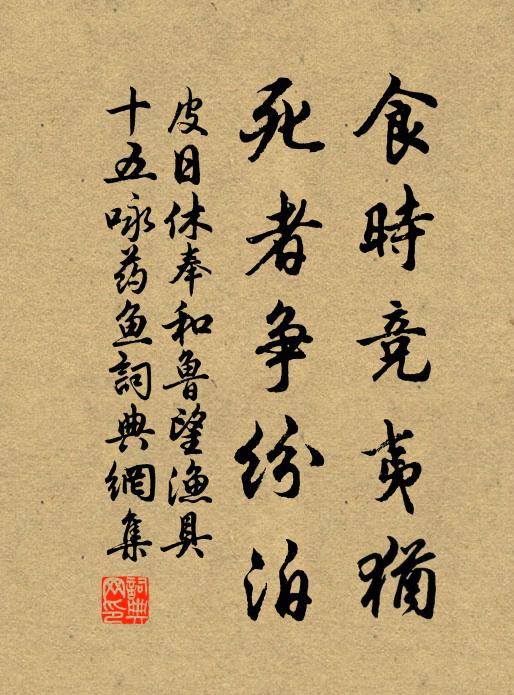 食時競夷犹
死者争紛泊
皮日休奉和鲁望渔具
十五咏药鱼詞典網集
詞典网印